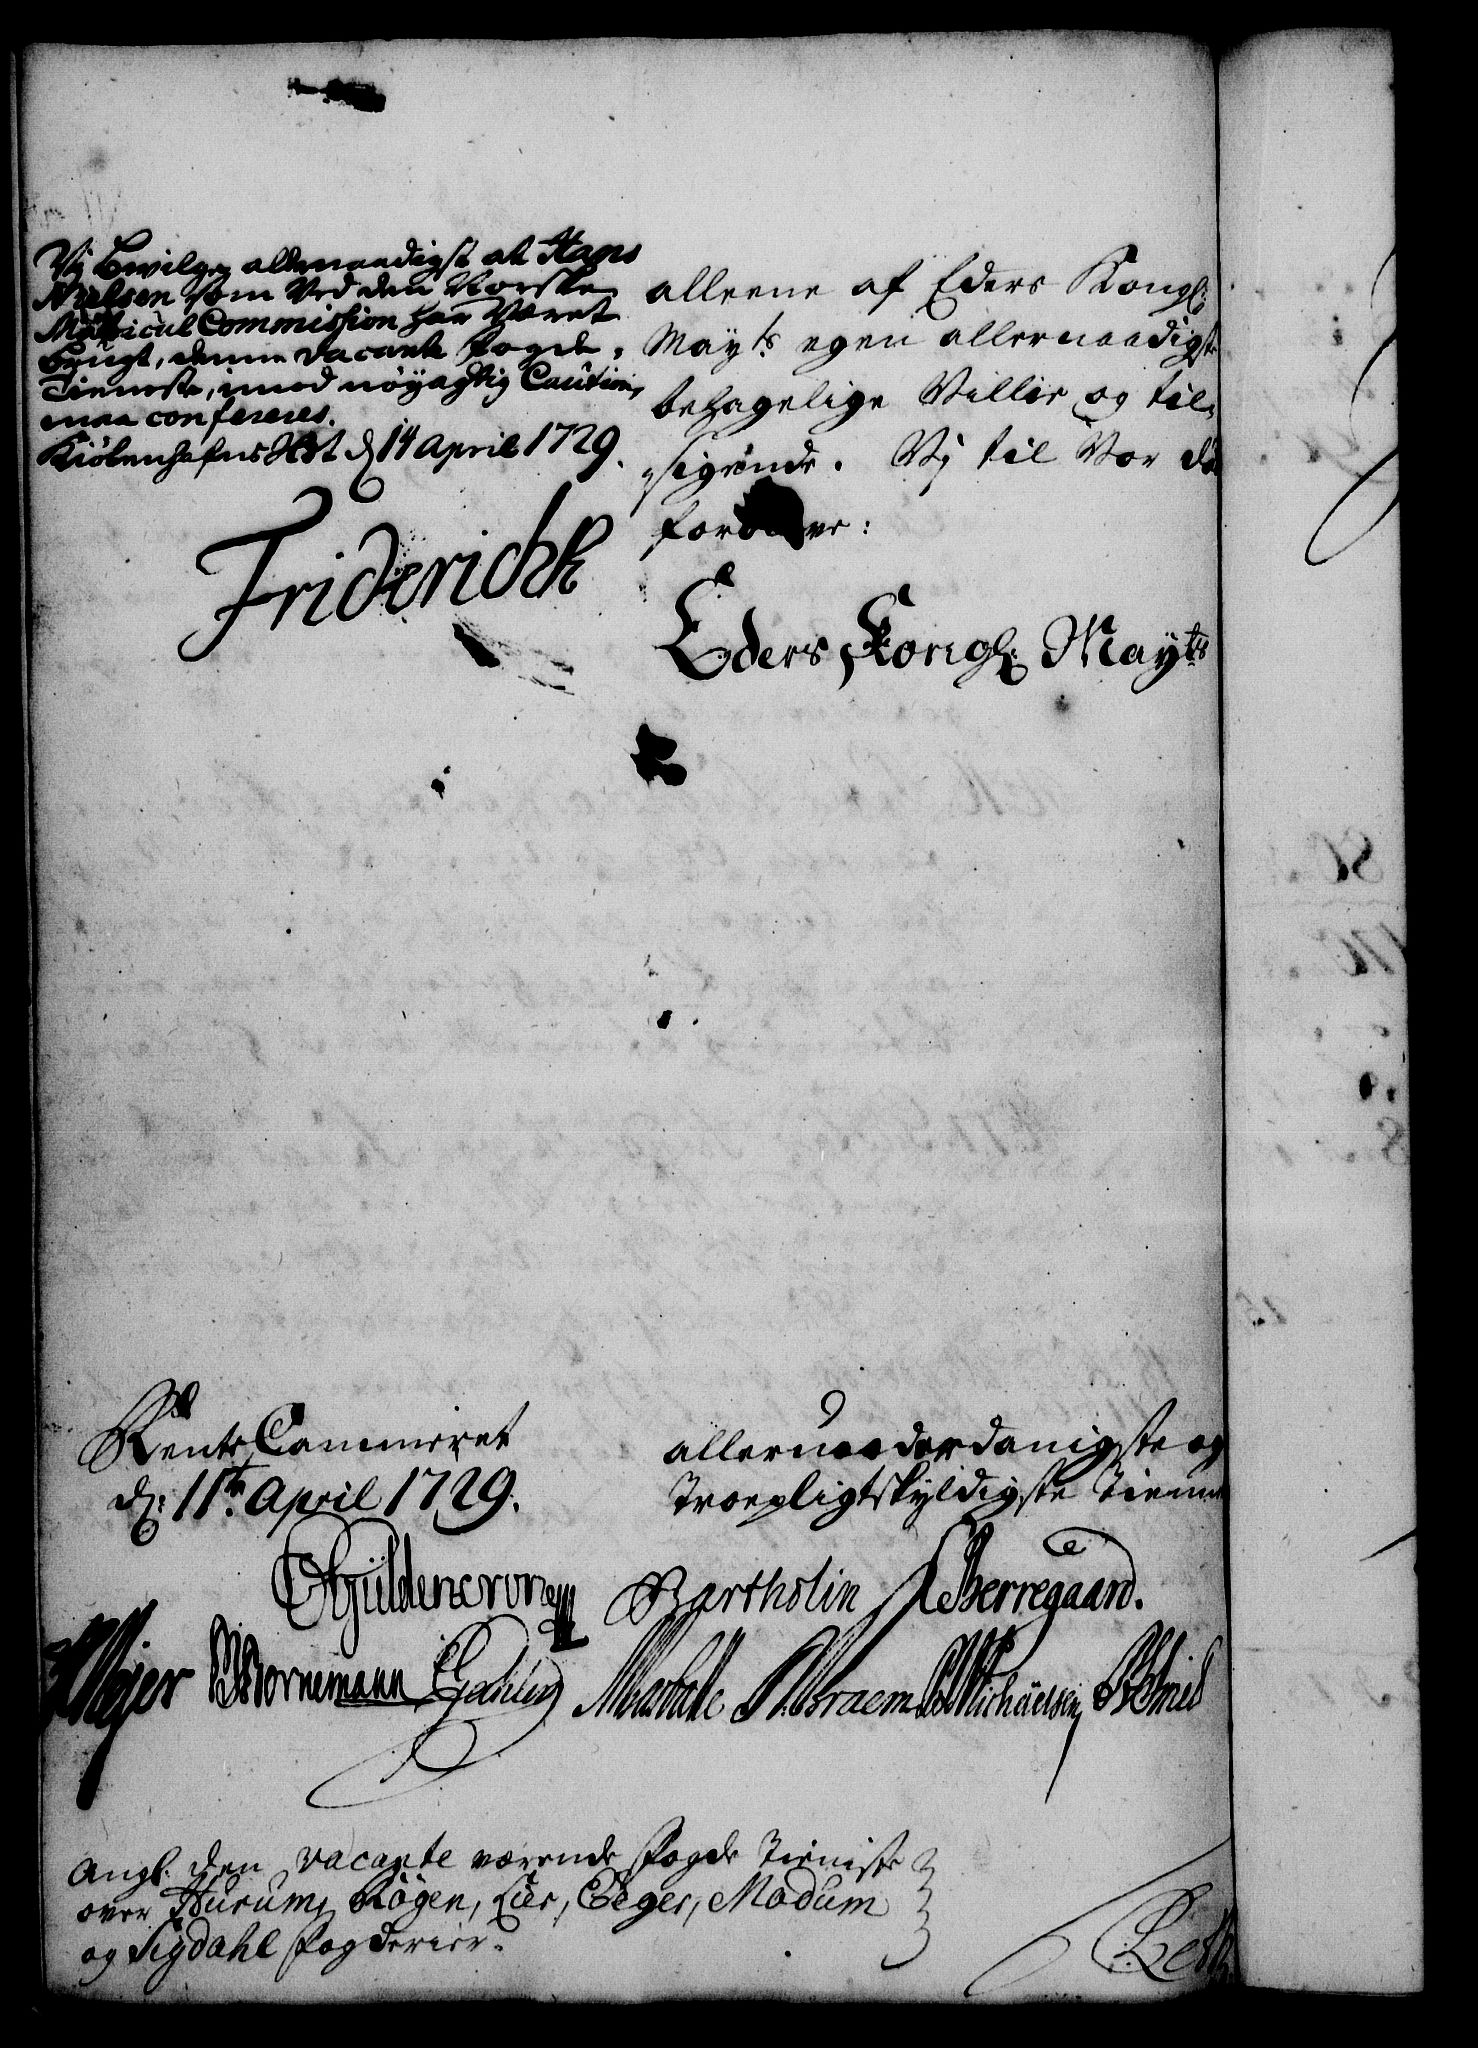 Vj bevilge allernaadigst at Hans
Nielsen som Ved den Norske
Matricul Commission har Været
brugt, denne vacante Fogde-
Tieneste, imod nöyagtig Caution,
maa confereres.
Kiöbenhafns Slot d 14 April 1729.
Friderich R
alleene af Eders Kongl:
Mayts egen allernaadigste
behagelige Villie og til-
sigende. Vj til Vor dö
forblive:
Eders Kongl: Mayts
Rente Cammeret
d: 11te April 1729.
allerunderdanigste og
Troepligtskyldigste Tienere
Güldencrone Bartholin Berregaard.
Meier Bornemann Braem Michaelsen
Angl: den vacante værende Fogde Tieniste
over Hurum, Rögen, Lier, Eeger, Modum
og Sigdahl Fogderier.